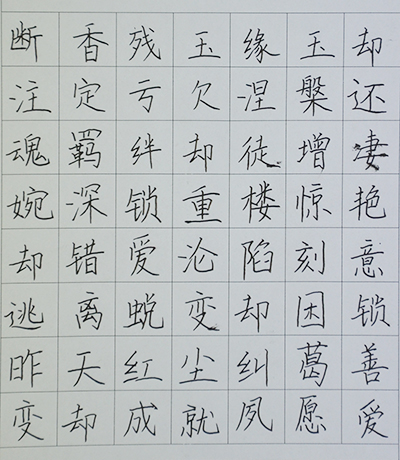 断香残玉缘玉却
注定亏欠涅槃还
魂羁绊却徒增凄
婉深锁重楼惊艳
却错爱沦陷刻意
逃离蜕变却困锁
昨天红尘纠葛善
变却成就夙愿爱